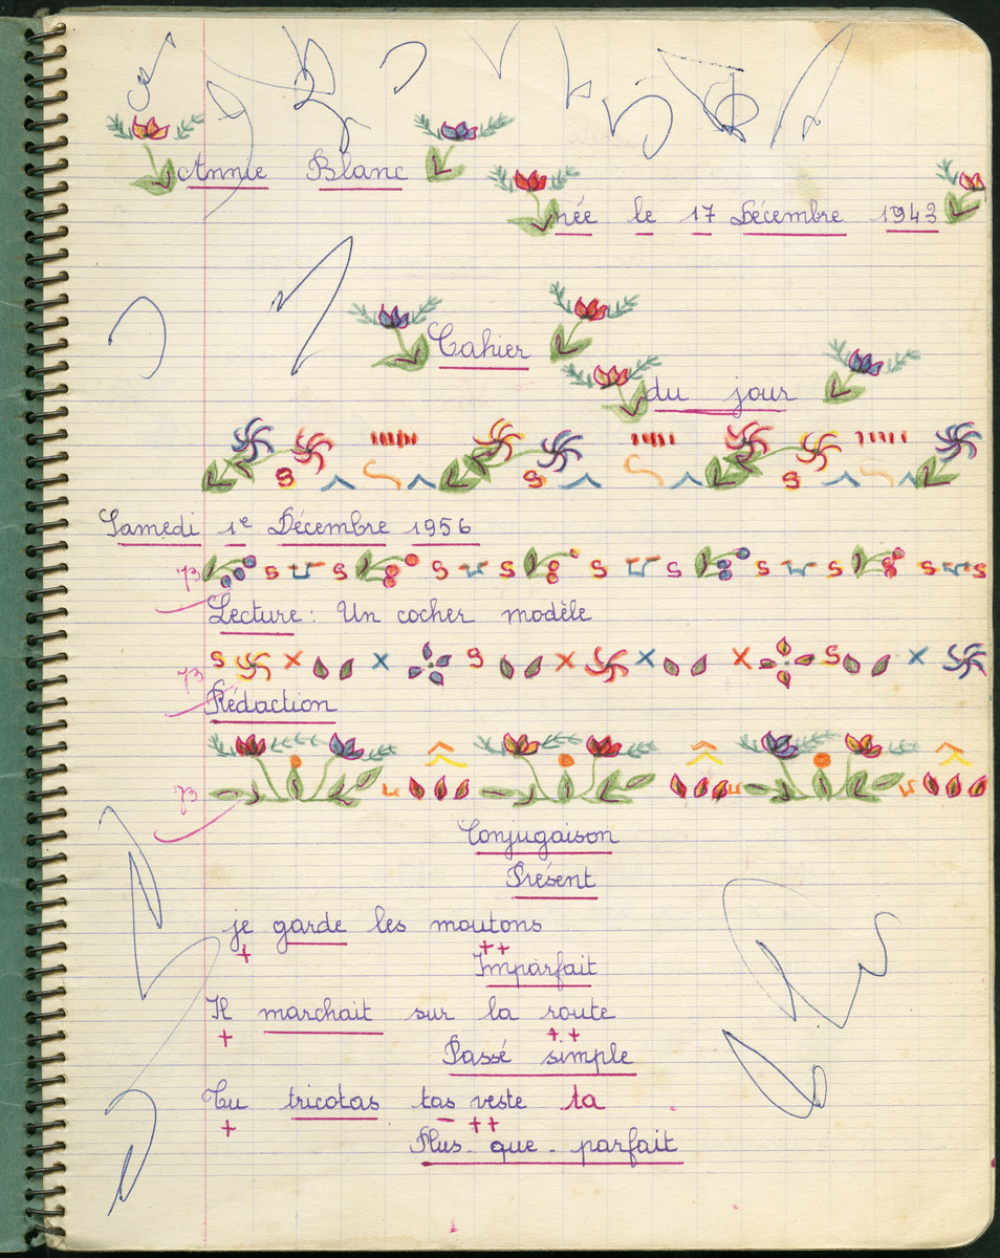 Annie Blanc
née le 17 Décembre 1943
Cahier
du jour
Samedi 1e Décembre 1956
73
Lecture : Un cocher modèle
73
Rédaction
73
Conjugaison
Présent
je garde les moutons
+ ++
Imparfait
Il marchait sur la route
+ ++
Passé simple
Tu tricotas tas veste ta
+ ++
Plus-que-parfait